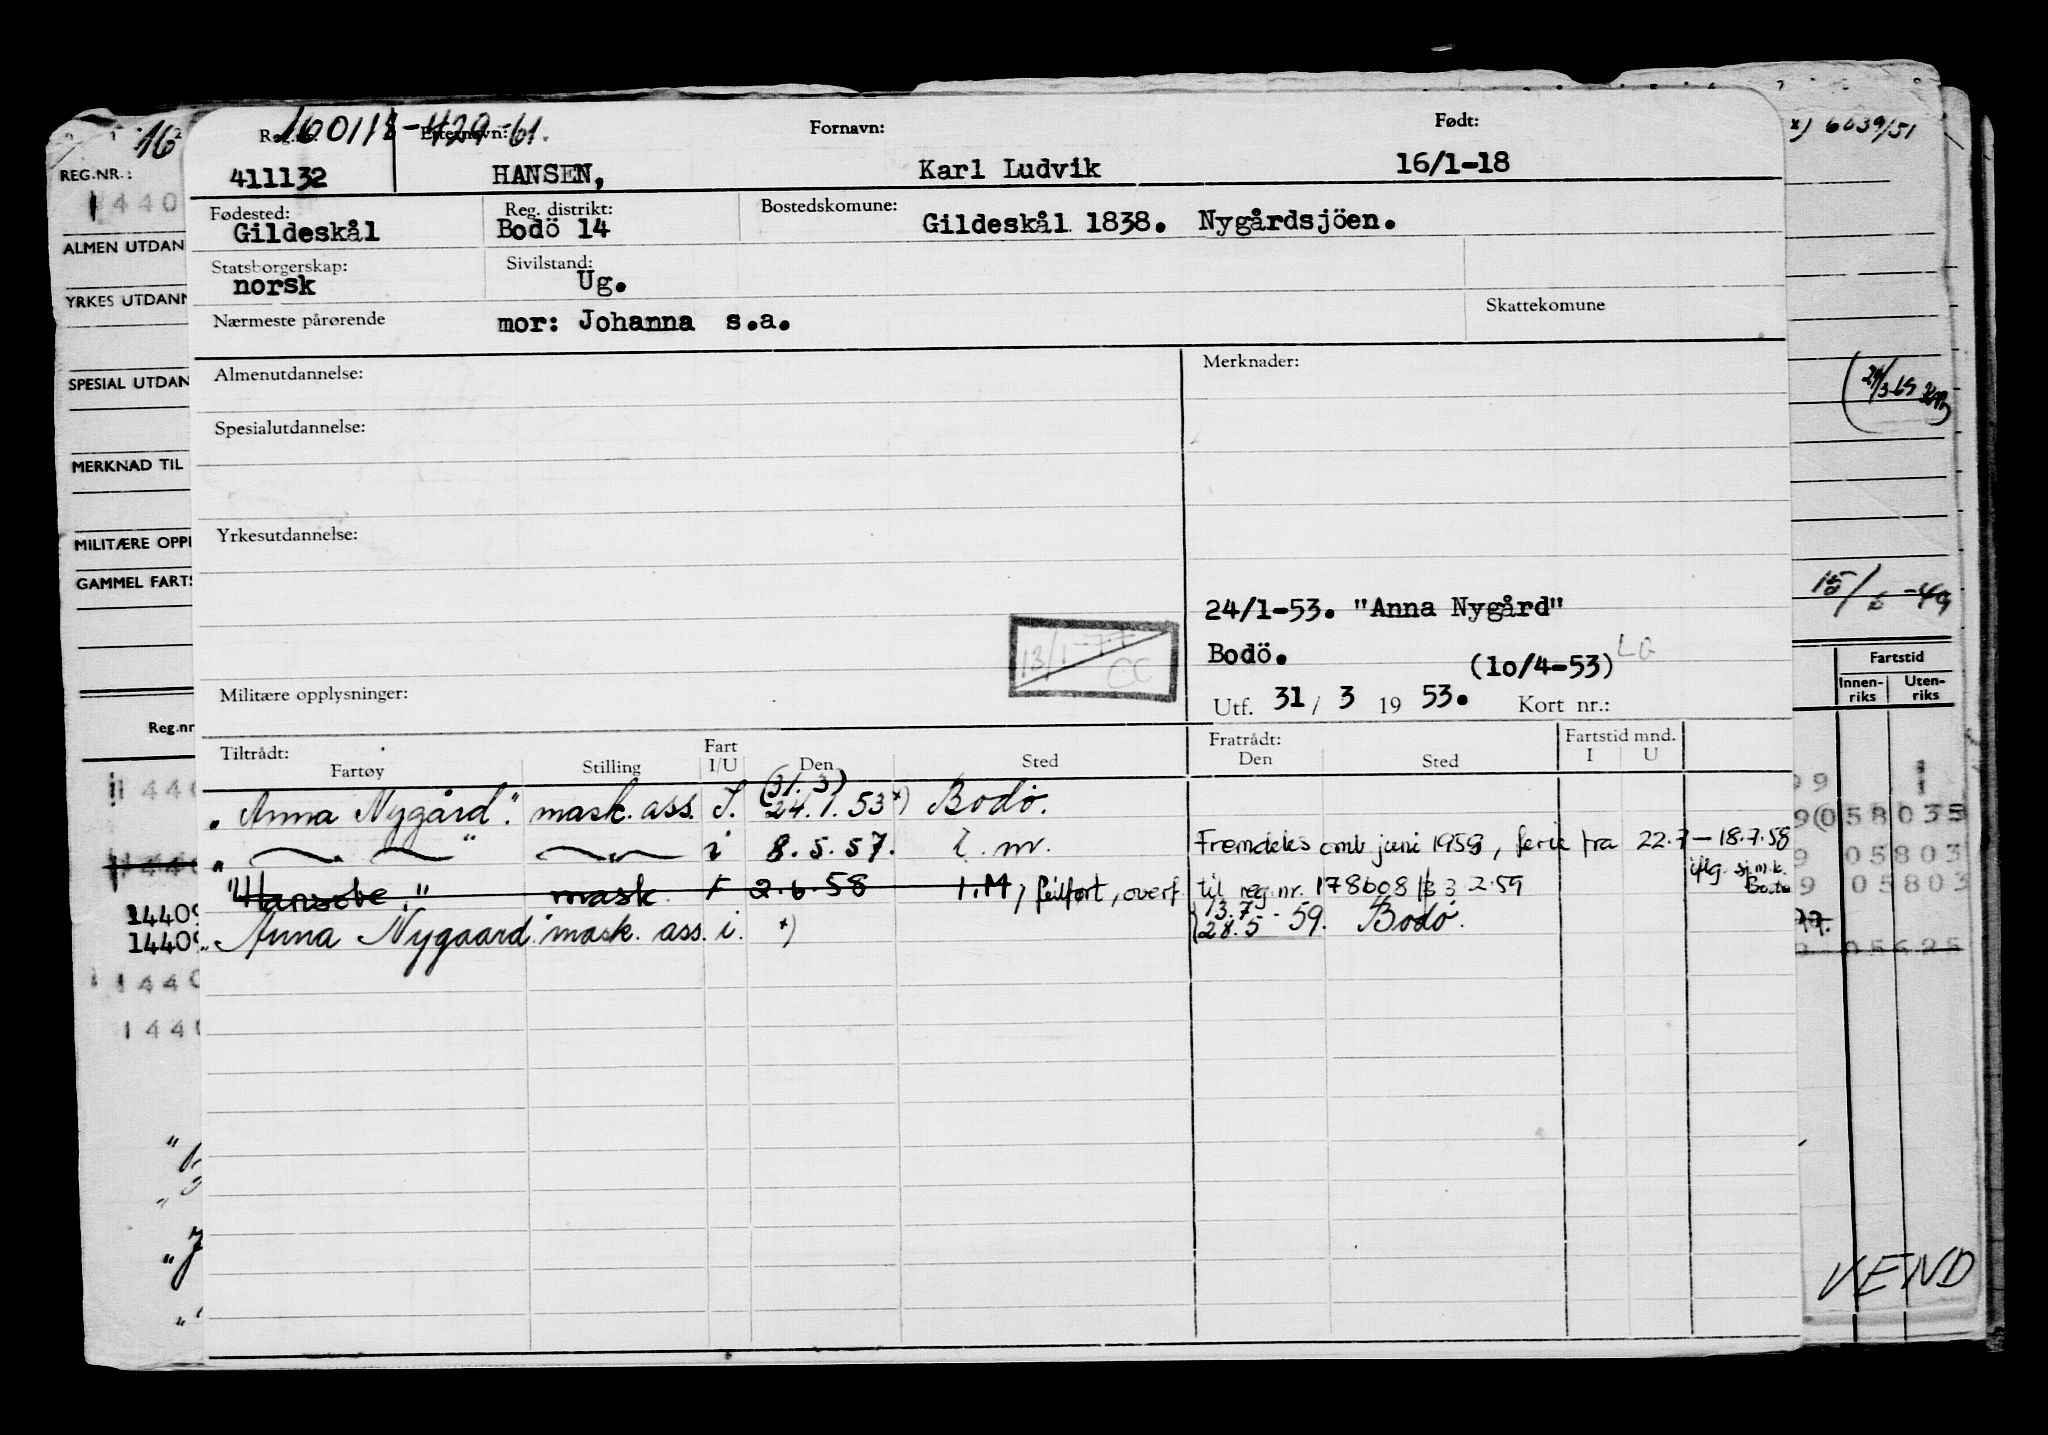 160118-429-61.
Reg.nr. Etternavn: Fornavn: Født:
411132 HANSEN, Karl Ludvik 16/1-18
Fødested: Reg. distrikt: Bostedskomune:
Gildeskål Bodö 14 Gildeskål 1838. Nygårdsjöen.
Statsborgerskap: Sivilstand:
norsk Ug.
Nærmeste pårørende mor: Johanna s.a. Skattekomune
Almenutdannelse: Merknader:
Spesialutdannelse:
Yrkesutdannelse:
24/1-53. "Anna Nygård"
13/1-77 CC
Bodö. (1o/4-53) LG
Militære opplysninger: Utf. 31/ 3 19 53. Kort nr.:
Tiltrådt: Fart Fratrådt: Fartstid mnd.
Fartøy Stilling I/U Den Sted Den Sted I U
(31.3)
"Anna Nygård". mask. ass. I. 24.1.53 x) Bodö.
" — " — " — " — i 8.5.57. i.m. Fremdeles omb juni 1958, ferie fra 22.7 — 18.7.58
iflg. sj.m.k. Bodø
mask 2.6.58 I.M, feilført, overf. til reg nr. 178608 3 2.59
"Anna Nygaard mask. ass. i. x) 13.7 28.5 - 59. Bodö.
16
REG.NR.:
1440
ALMEN UTDAN
YRKES UTDANN
SPESIAL UTDAN
MERKNAD TIL
MILITÆRE OPPL
GAMMEL FARTS
Reg.nr
1440
1440
14409
14409
1440
1440
x) 6639/51
15/6-49
Fartstid
Innen-riks Uten-riks
99 1
9(058035
9 05803
9 05803
9 05625
VEND